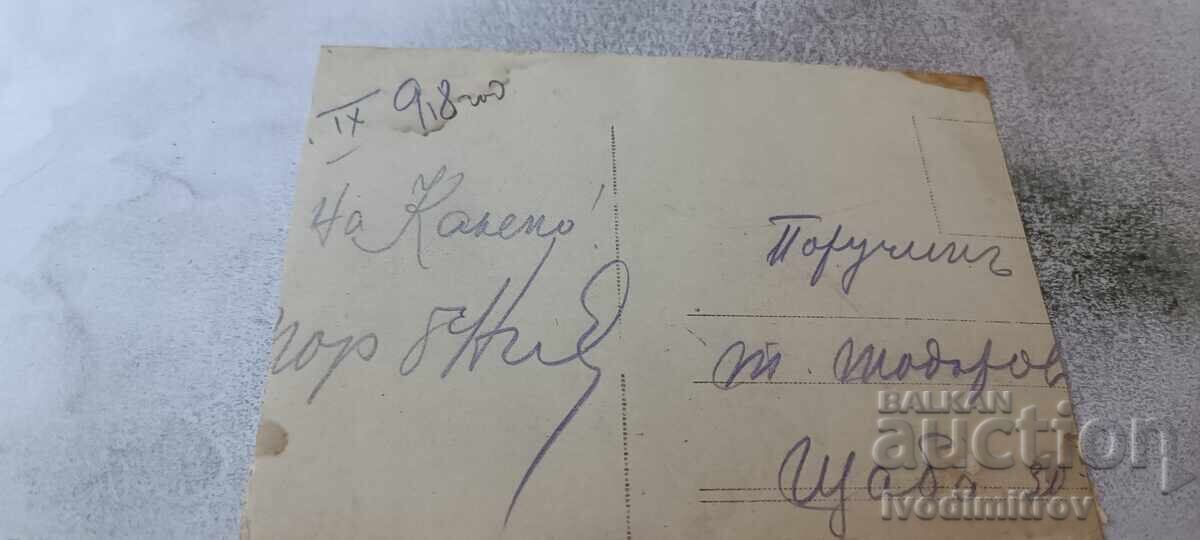 IX 918 год
На Канепо!
пор
Поручикъ
Т. Тодоров
Щаба 30
BALKAN
auction
ivodimitrov